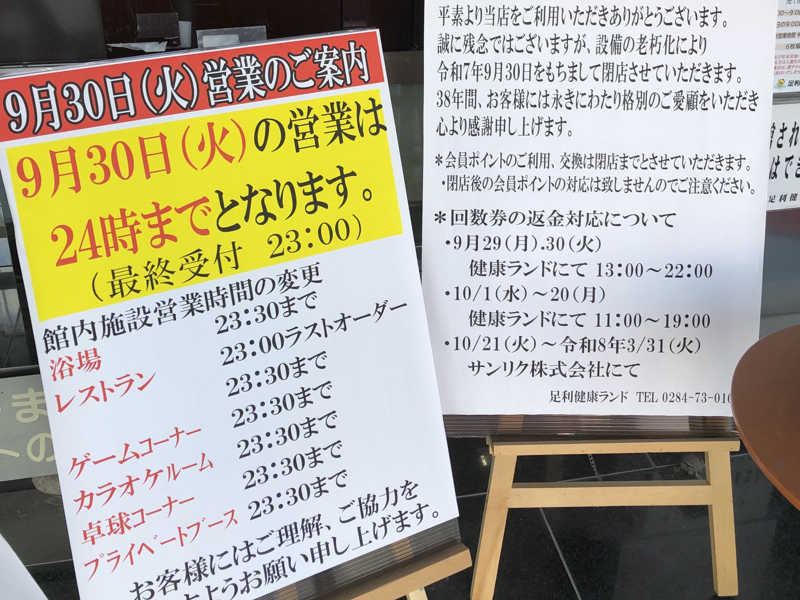 9月30日(火)営業のご案内
9月30日(火)の営業は
24時までとなります。
(最終受付 23:00)
館内施設営業時間の変更
浴場 23:30まで
レストラン 23:00ラストオーダー
23:30まで
ゲームコーナー 23:30まで
カラオケルーム 23:30まで
卓球コーナー 23:30まで
プライベートブース 23:30まで
お客様にはご理解、ご協力を
ようお願い申し上げます。
平素より当店をご利用いただきありがとうございます。
誠に残念ではございますが、設備の老朽化により
令和7年9月30日をもちまして閉店させていただきます。
38年間、お客様には永きにわたり格別のご愛顧をいただき
心より感謝申し上げます。
*会員ポイントのご利用、交換は閉店までとさせていただきます。
・閉店後の会員ポイントの対応は致しませんのでご注意ください。
*回数券の返金対応について
・9月29(月).30(火)
健康ランドにて 13:00〜22:00
・10/1(水)〜20(月)
健康ランドにて 11:00〜19:00
・10/21(火)〜令和8年3/31(火)
サンリク株式会社にて
足利健康ランド TEL 0284-73-010